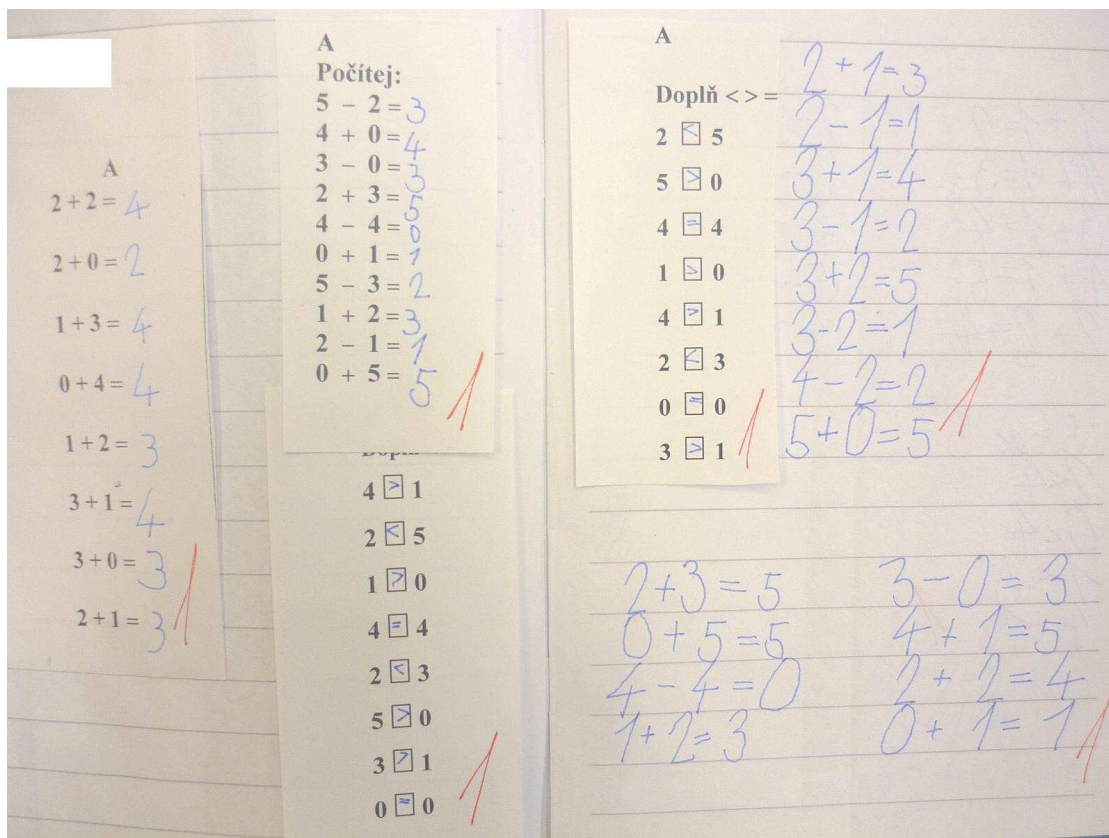 A
2 + 2 = 4
2 + 0 = 2
1 + 3 = 4
0 + 4 = 4
1 + 2 = 3
3 + 1 = 4
3 + 0 = 3
2 + 1 = 3
1
A
Počítej:
5 - 2 = 3
4 + 0 = 4
3 - 0 = 3
2 + 3 = 5
4 - 4 = 0
0 + 1 = 1
5 - 3 = 2
1 + 2 = 3
2 - 1 = 1
0 + 5 = 5
1
4 > 1
2 < 5
1 > 0
4 = 4
2 < 3
5 > 0
3 > 1
0 = 0
1
A
Doplň < > =
2 < 5
5 > 0
4 = 4
1 > 0
4 > 1
2 < 3
0 = 0
3 > 1
1
2 + 1 = 3
2 - 1 = 1
3 + 1 = 4
3 - 1 = 2
3 + 2 = 5
3 - 2 = 1
4 - 2 = 2
5 + 0 = 5
1
2 + 3 = 5
0 + 5 = 5
4 - 4 = 0
1 + 2 = 3
3 - 0 = 3
4 + 1 = 5
2 + 2 = 4
0 + 1 = 1
1